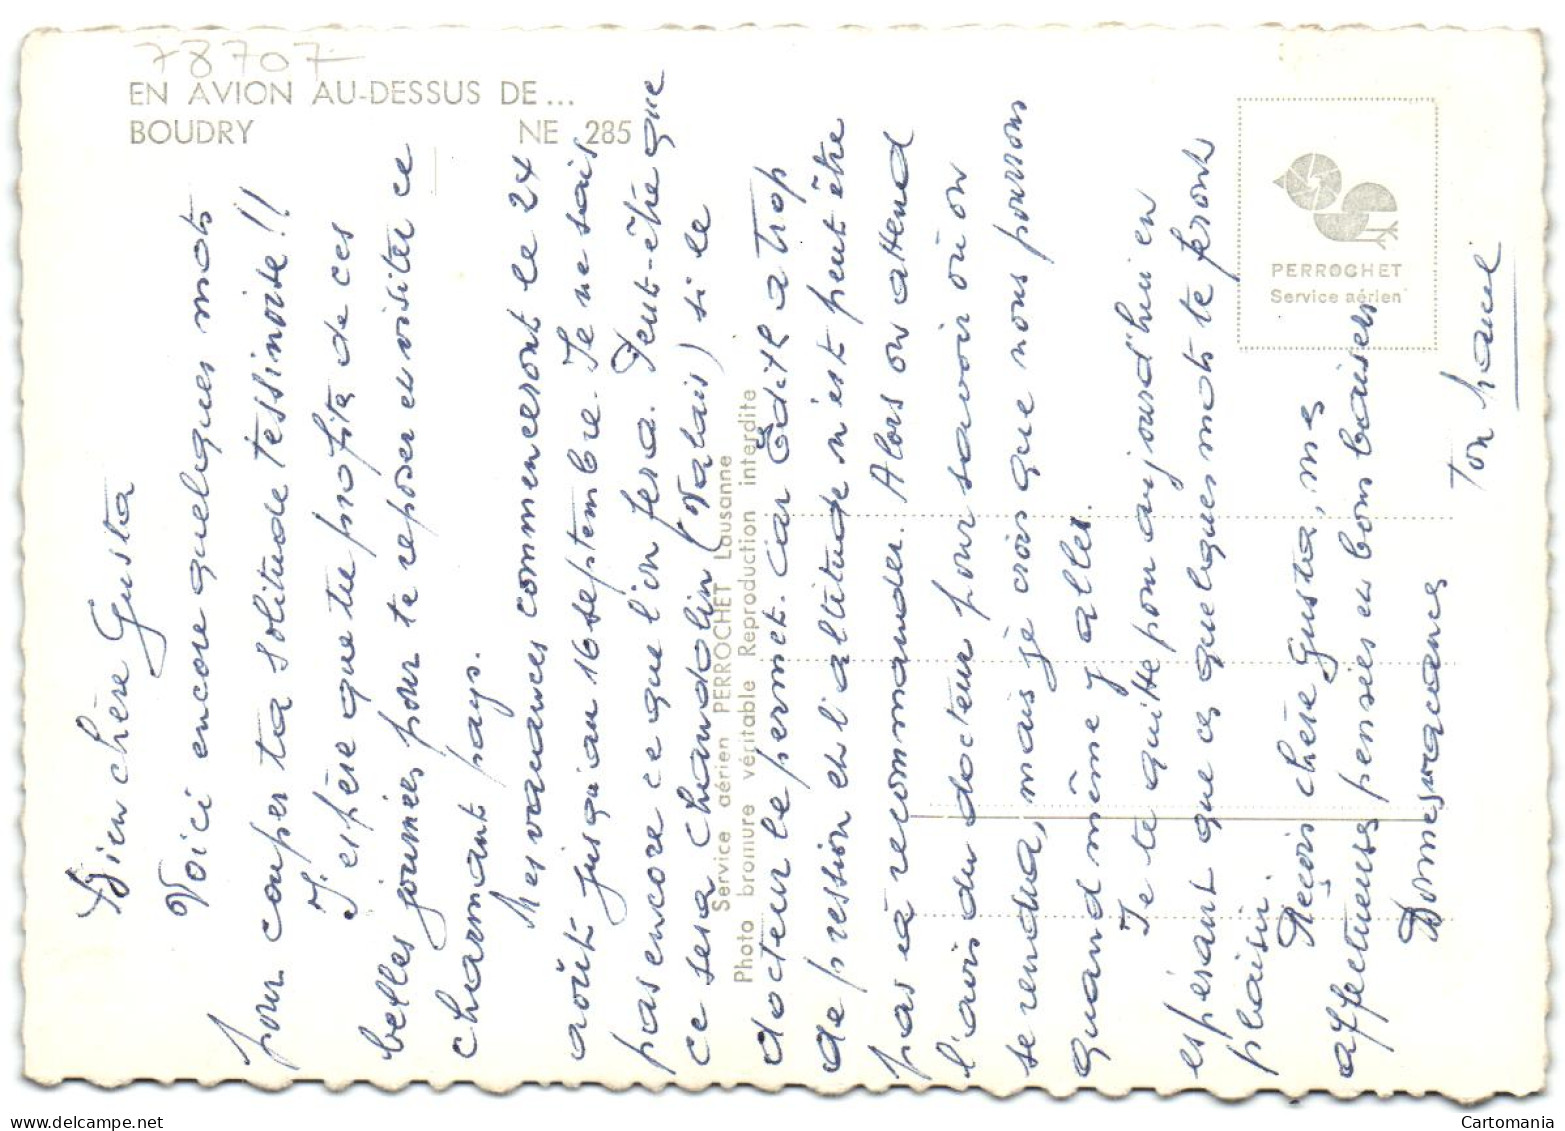 78707
EN AVION AU-DESSUS DE...
BOUDRY NE 285
PERROCHET
Service aérien
Service aérien PERROCHET Lausanne
Photo bromure véritable Reproduction interdite
Bien chère Gusta
Voici encore quelques mots
pour couper ta solitude tessinoise!!
J'espère que tu profite de ces
belles journées pour te reposer et visiter ce
charmant pays.
Mes vacances commenceront le 24
août jusqu'au 16 septembre. Je ne sais
pas encore ce que l'on fera. Peut-être que
ce sera Chandolin (Valais) si le
docteur le permet. Car Edith a trop
de pression et l'altitude n'est peut être
pas à recommander. Alors on attend
l'avis du docteur pour savoir où on
se rendra, mais je crois que nous pourrons
quand même y aller.
Je te quitte pour aujourd'hui en
espérant que ces quelques mots te feront
plaisir.
Reçois chère Gusta, mes
affectueuses pensées et bons baisers
Bonnes vacances
Ton
Cartomania